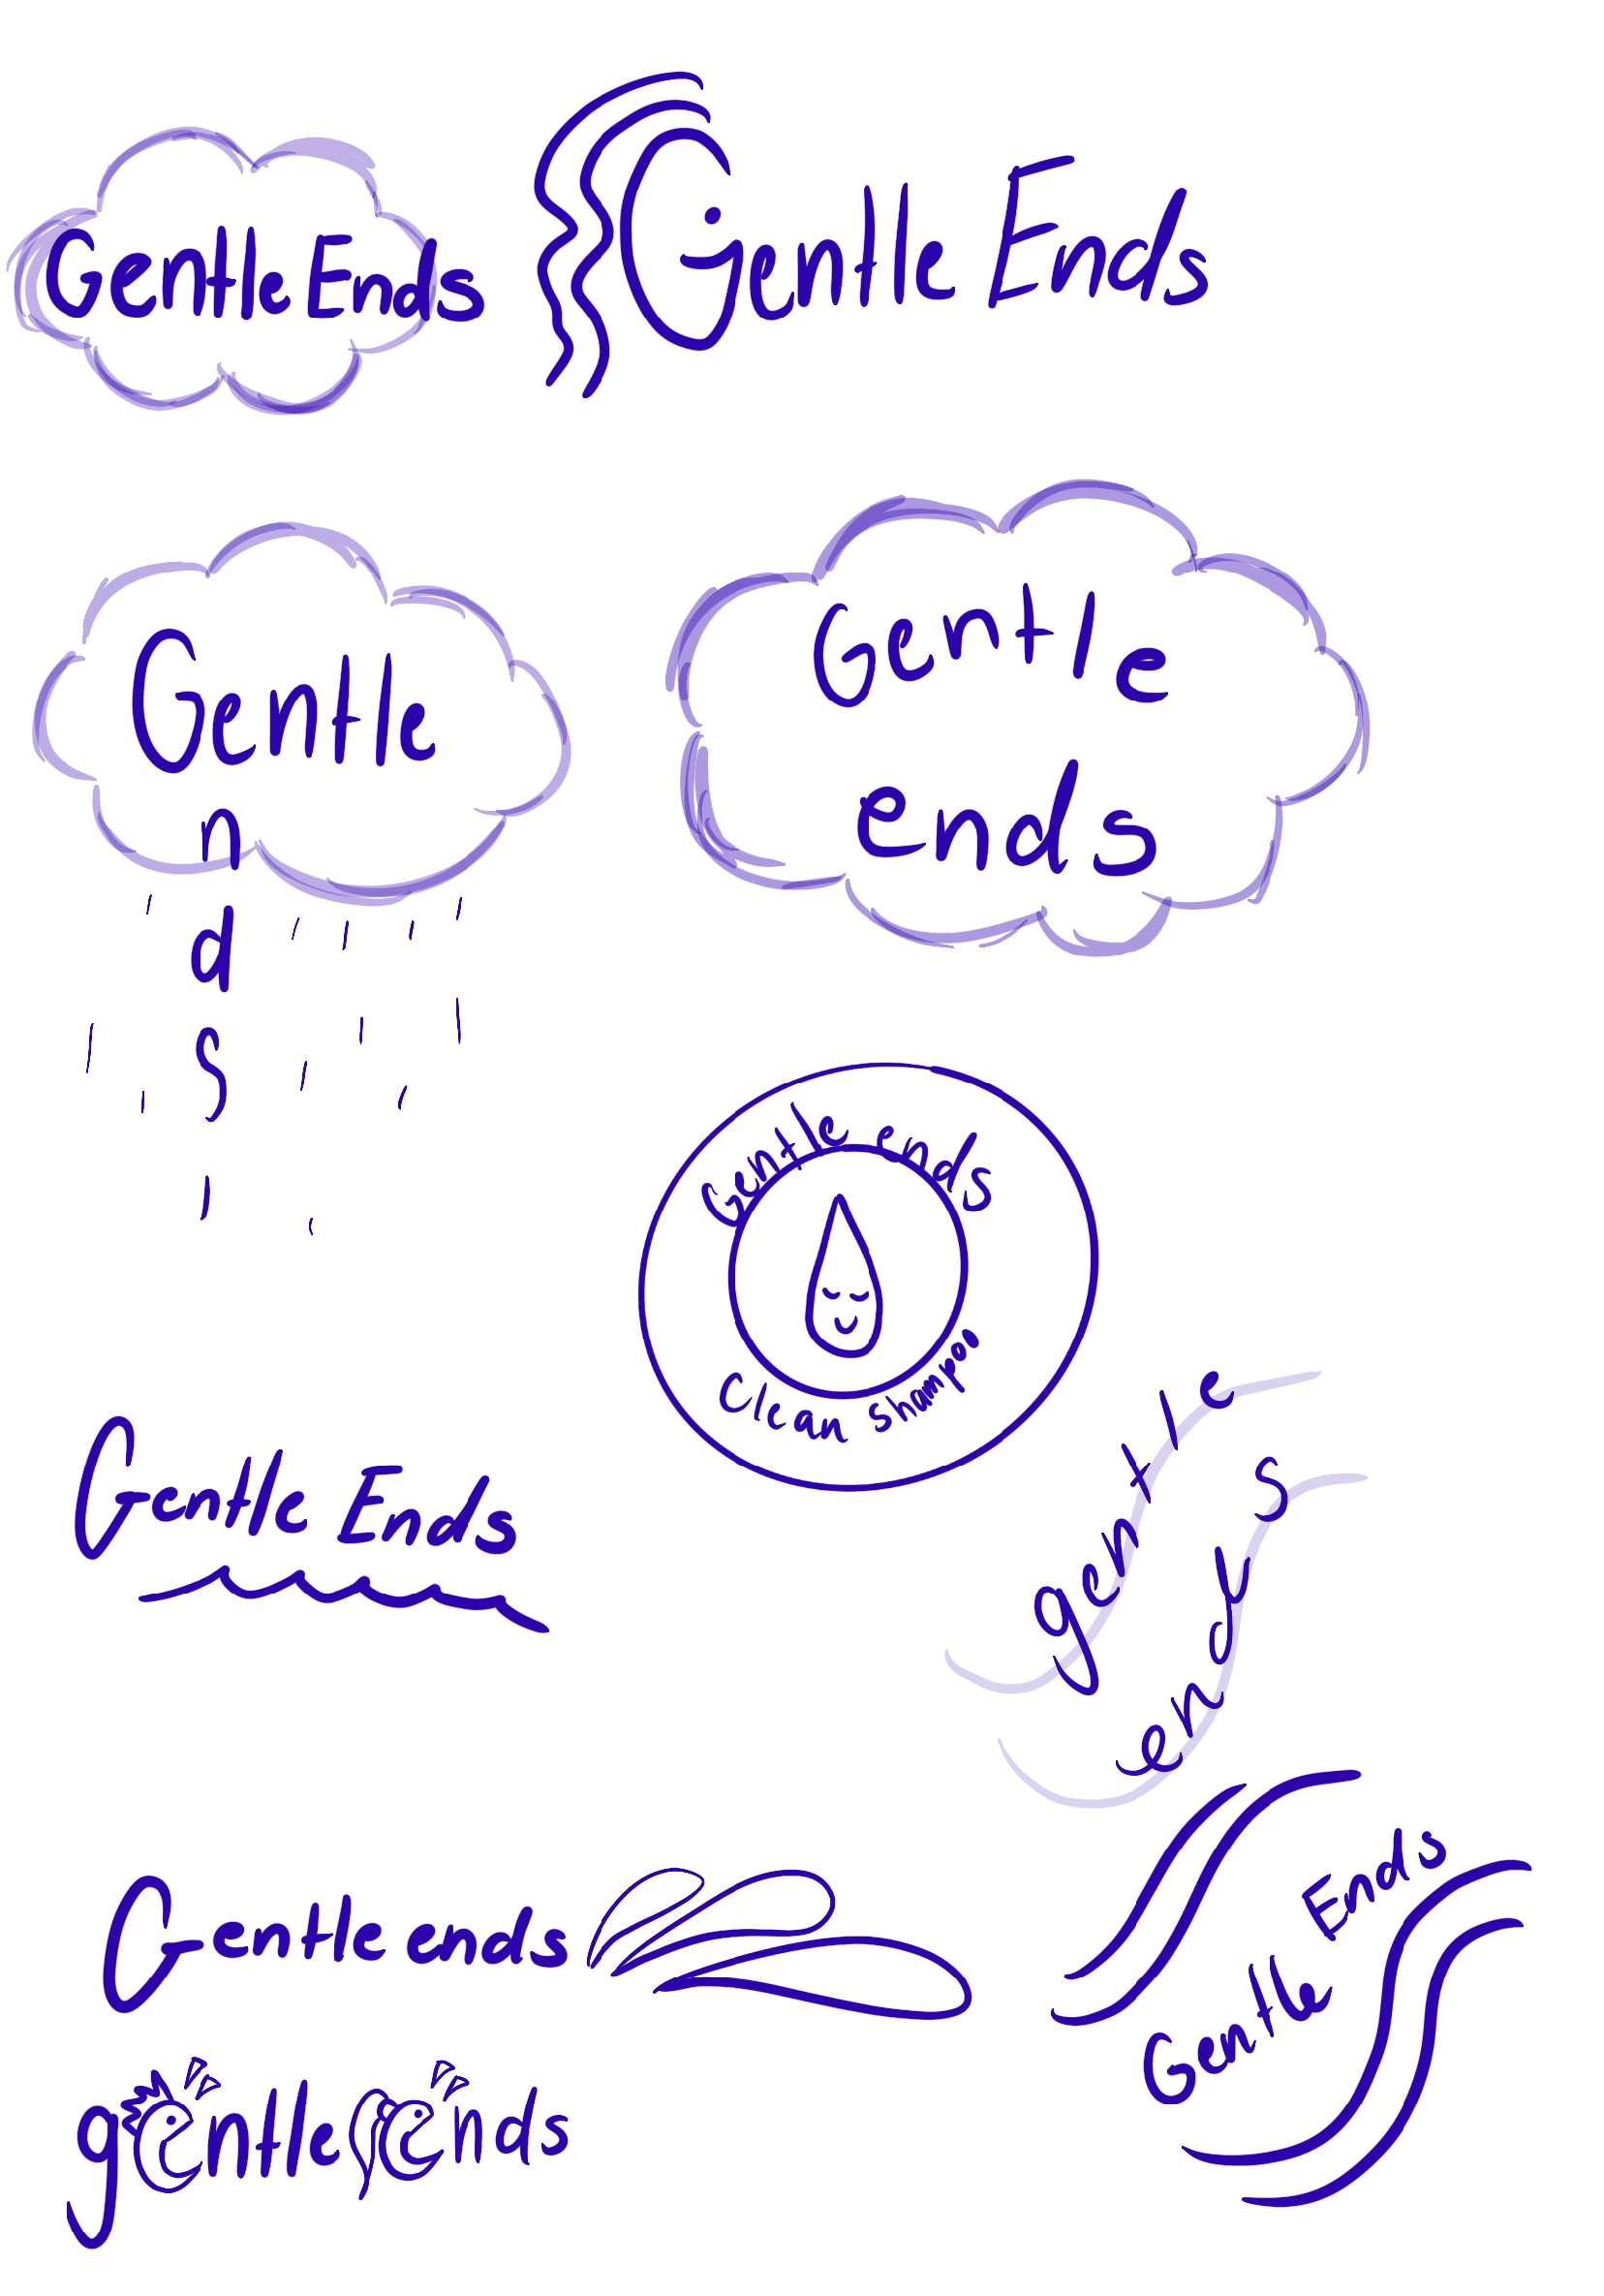 Gentle Ends
Gentle Ends
Gentle
n
d
s
Gentle
ends
Gentle ends
Clean shampoo
Gentle Ends
gentle
ends
Gentle Ends
Gentle ends
gentle ends